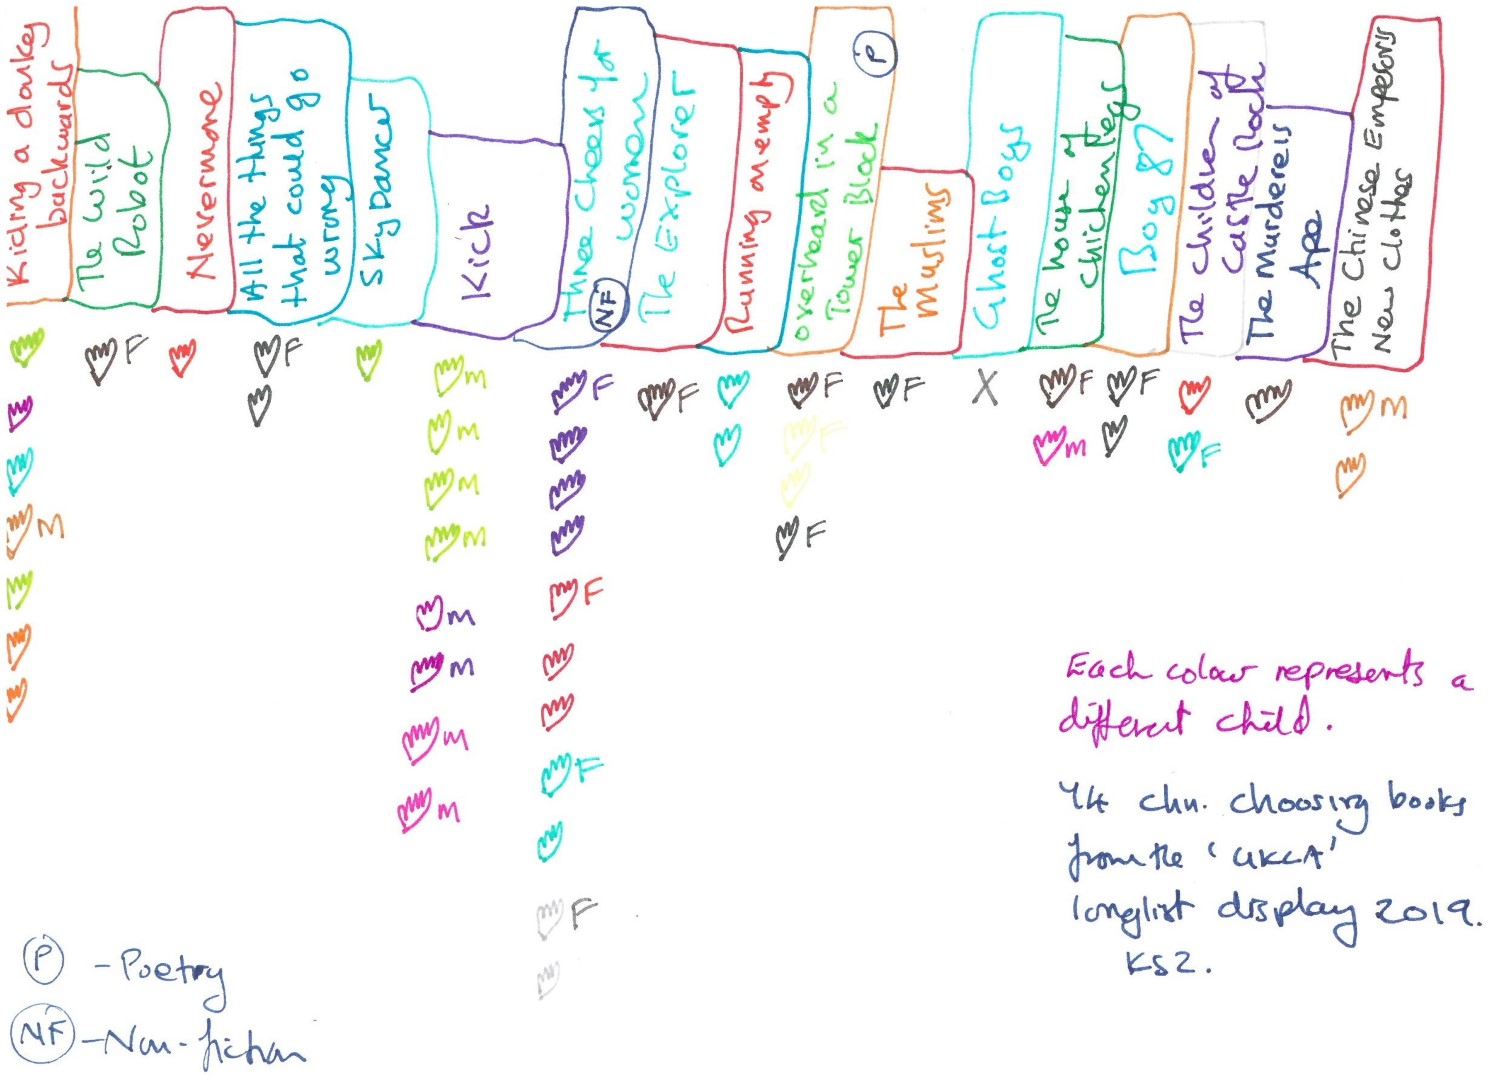 Riding a donkey
backwards
The Wild
Robot
Nevermore
All the things
that could go
wrong
Sky Dancer
Kick
Three cheers for
women
NF
The Explorer
Running on empty
overheard in a
Tower Block
P
The
Muslims
Ghost Boys
The house of
chicken legs
Boy 87
The children of
Castle Rock
The murderers
Ape
The Chinese Emperors
New Clothes
M
F
F
M
M
M
M
M
M
M
M
F
F
F
F
F
F
F
F
F
X
F
M
F
F
M
Each colour represents a
different child.
14 chn. choosing books
from the 'UKLA'
longlist display 2019.
KS2.
P - Poetry
NF - Non-fiction